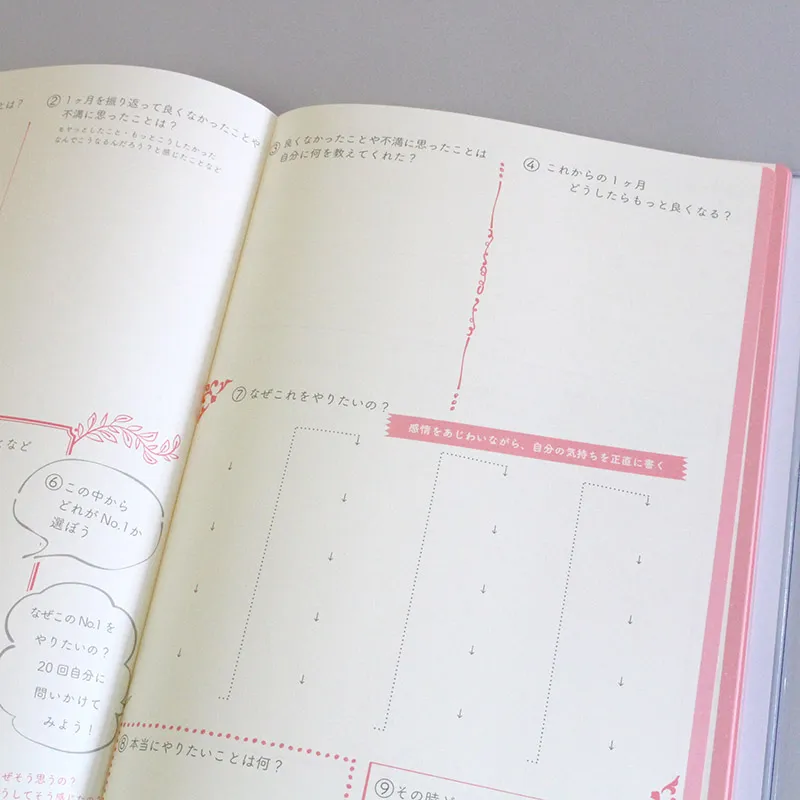 とは？
② 1ヶ月を振り返って良くなかったことや
不満に思ったことは？
モヤっとしたこと・もっとこうしたかった
なんでこうなるんだろう？と感じたことなど
③ 良くなかったことや不満に思ったことは
自分に何を教えてくれた？
④ これからの1ヶ月
どうしたらもっと良くなる？
となど
⑥ この中から
どれがNo.1か
選ぼう
なぜこのNo.1を
やりたいの？
20回自分に
問いかけて
みよう！
ぜそう思うの？
⑦ なぜこれをやりたいの？
感情をあじわいながら、自分の気持ちを正直に書く
↓ ↓ ↓ ↓
↓ ↓ ↓ ↓
↓ ↓ ↓ ↓
↓ ↓ ↓ ↓
↓ ↓
⑧ 本当にやりたいことは何？
⑨ その時